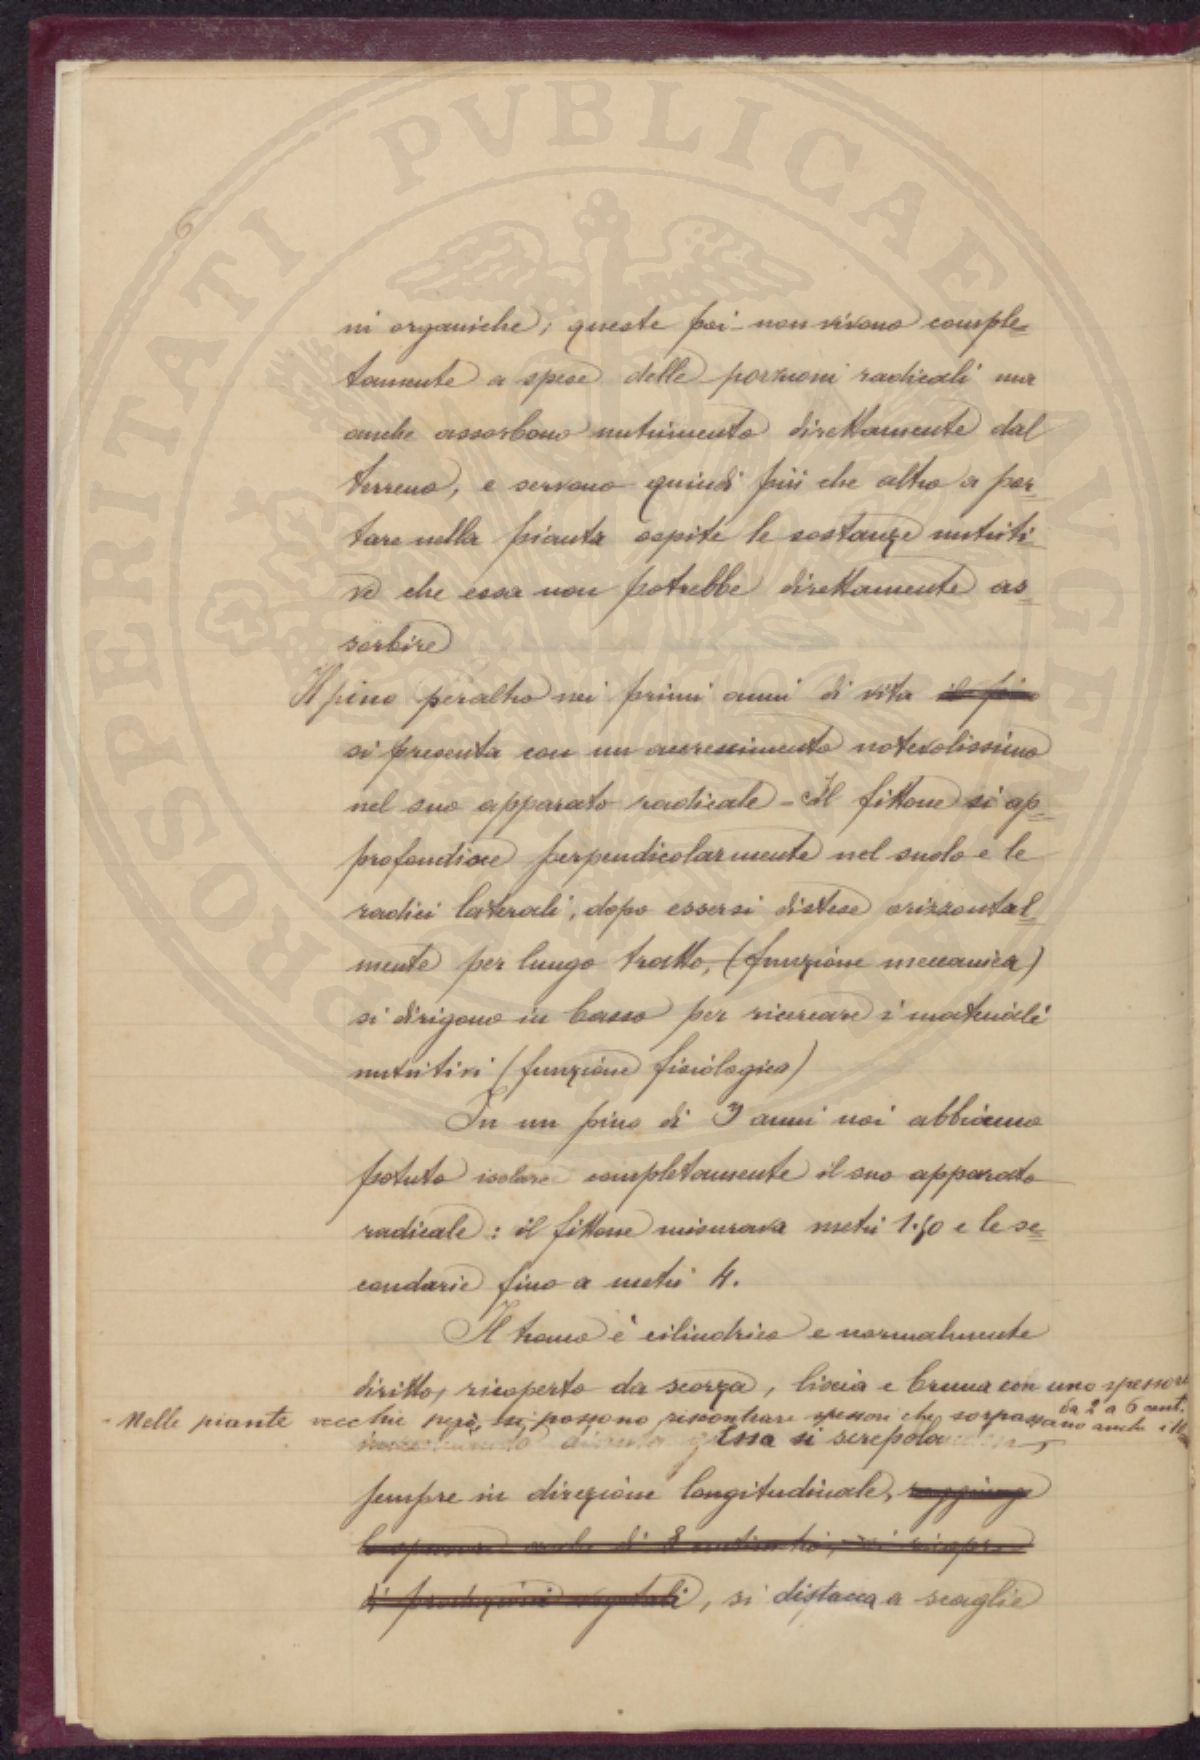 PROSPERITATI PVBLICAE AVGENDAE
6
ni organiche; queste poi non vivono comple=
tamente a spese delle porzioni radicali ma
anche assorbono nutrimento direttamente dal
terreno, e servono quindi più che altro a por=
tare nella pianta ospite le sostanze nutriti=
ve che essa non potrebbe direttamente as=
sorbire
Il pino peraltro nei primi anni di vita il pino
si presenta con un accrescimento notevolissimo
nel suo apparato radicale - Il fittone si ap=
profondisce perpendicolarmente nel suolo e le
radici laterali, dopo essersi distese orizzontal=
mente per lungo tratto, (funzione meccanica)
si dirigono in basso per ricercare i materiali
nutritivi (funzione fisiologica)
In un pino di anni noi abbiamo
potuto isolare completamente il suo apparato
radicale: il fittone misurava metri e le se=
condarie fino a metri 4.
Il tronco è cilindrico e normalmente
diritto, ricoperto da scorza, liscia e bruna con uno spessore
da 2 a 6 cent.
- Nelle piante vecchie però, si possono riscontrare spessori che sorpassano anche i 10
Essa si screpola
sempre in direzione longitudinale, raggiunge
lo spessore anche di 8 centimetri, si ricopre
di produzioni vegetali, si distacca a scaglie